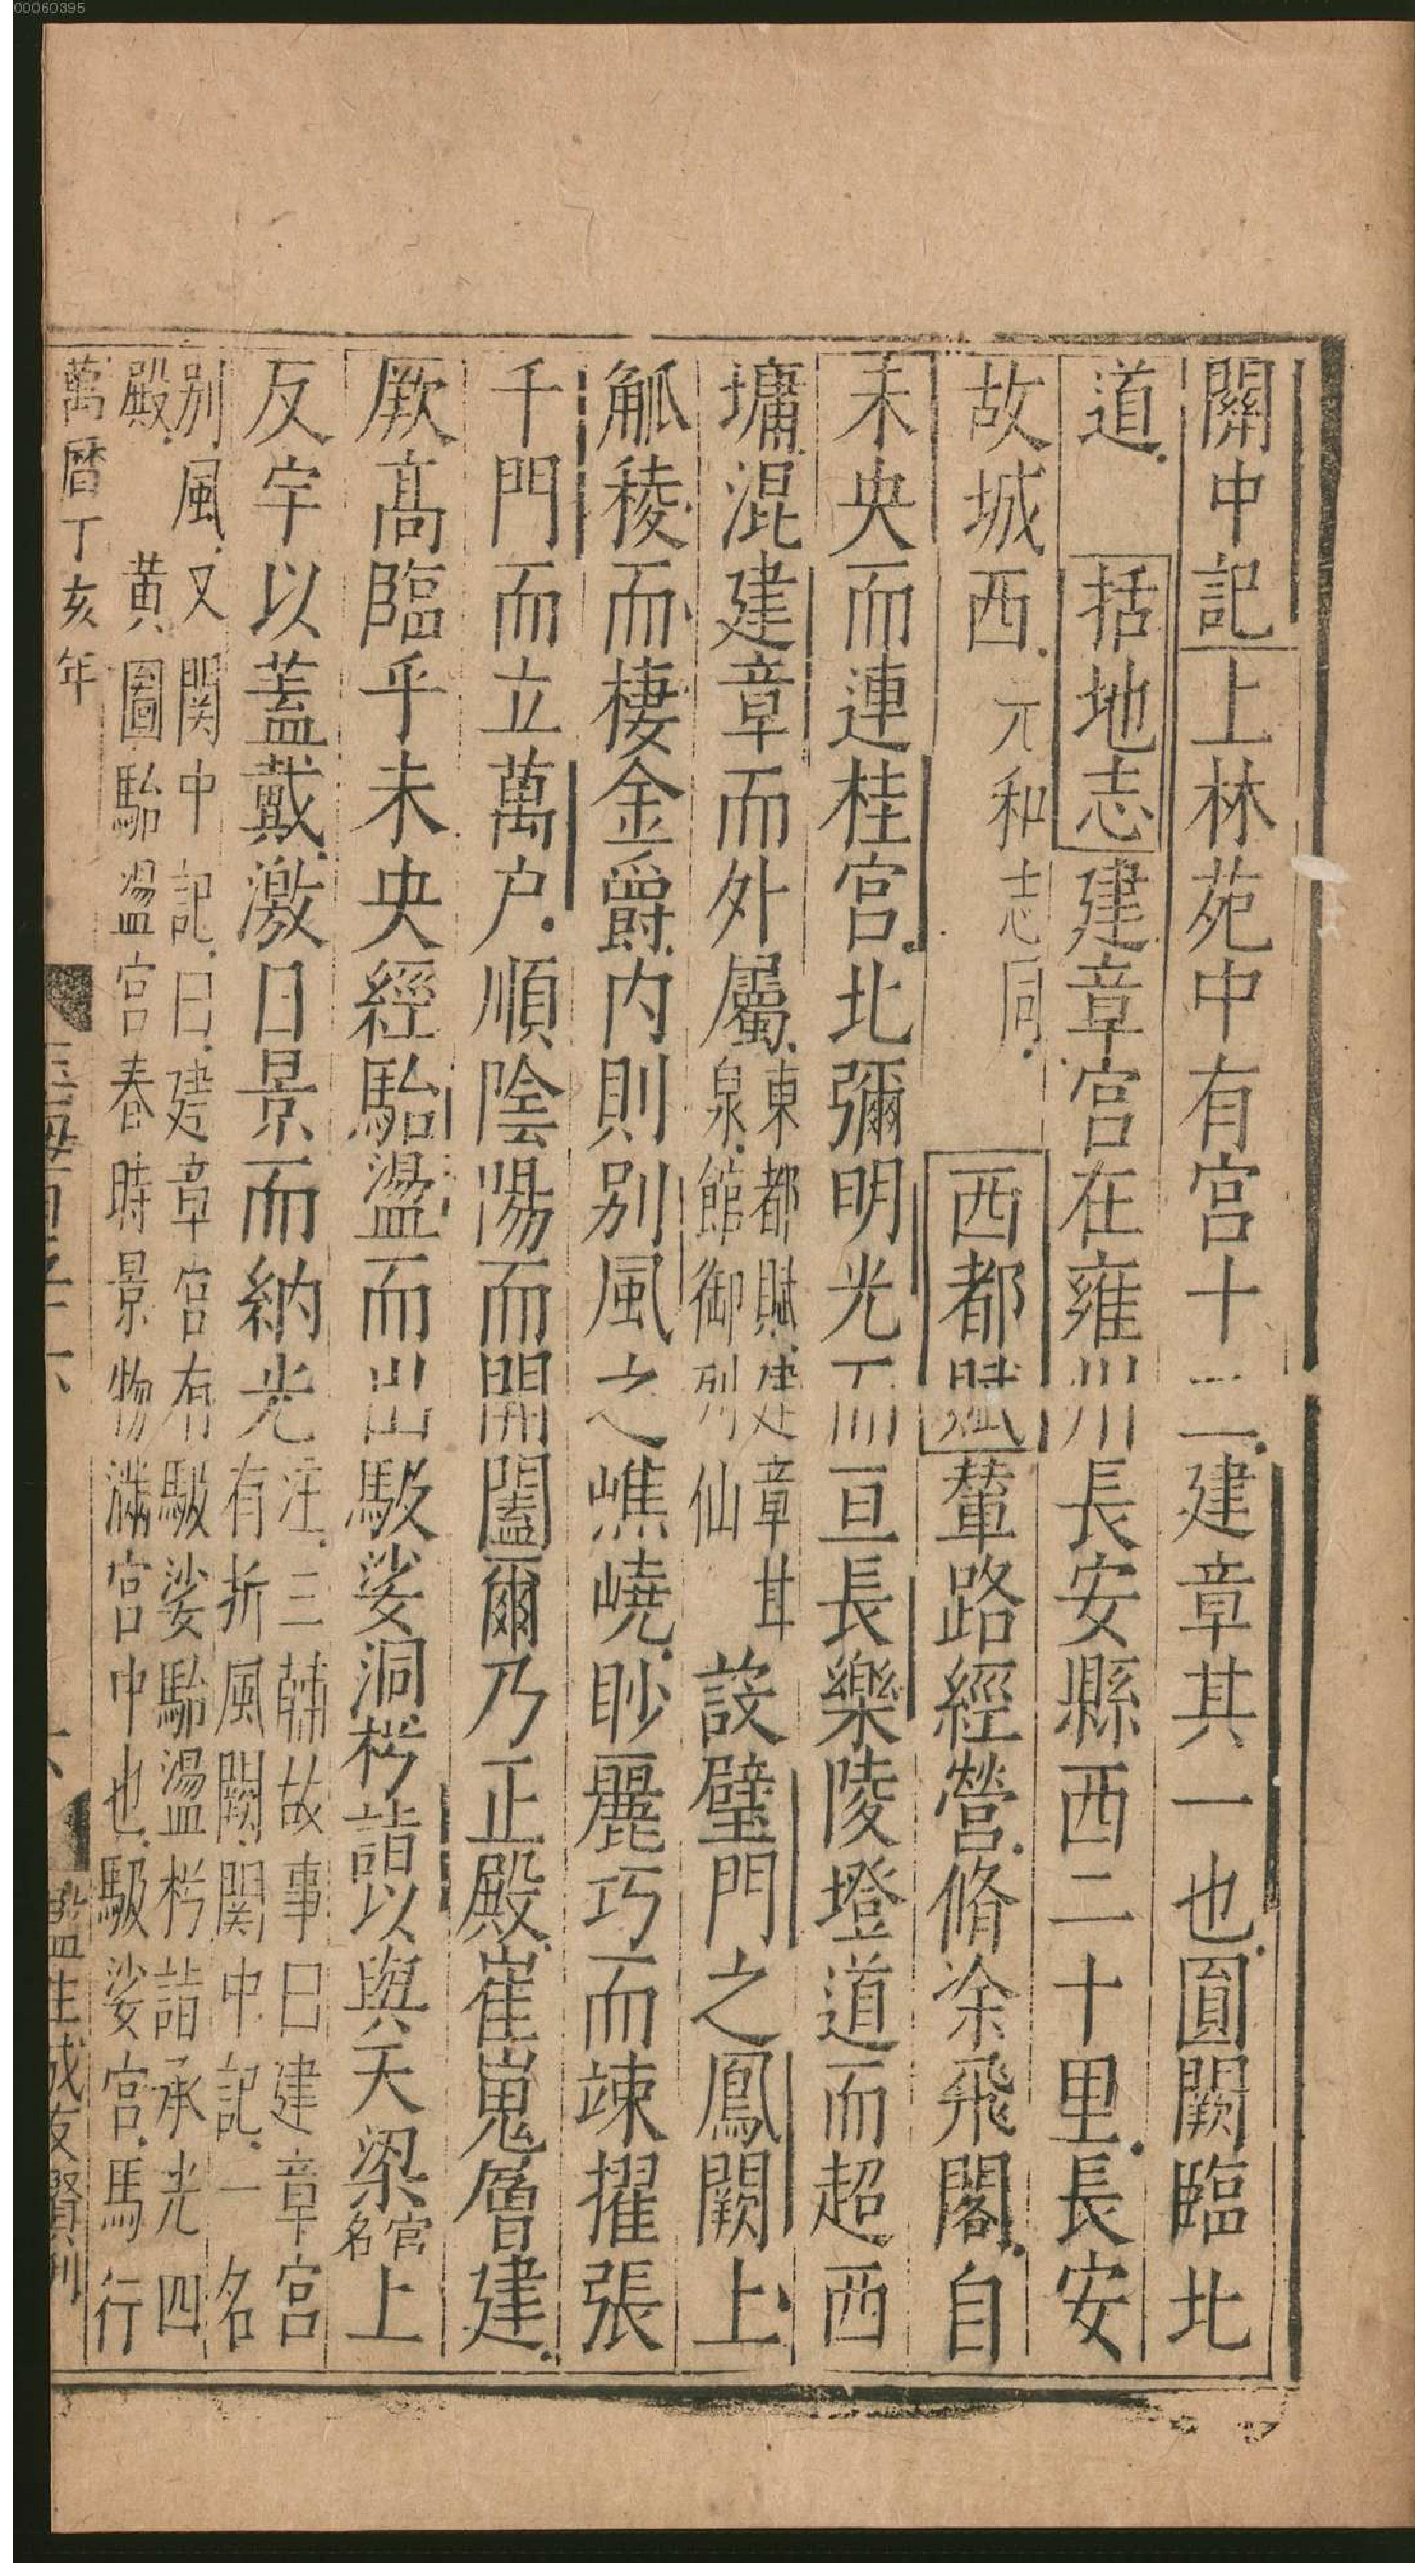 00060395
關中記上林苑中有宮十二建章其一也圓闕臨北
道 括地志建章宮在雍州長安縣西二十里長安
故城西元和志同 西都賦輦路經營脩涂飛閣自
未央而連桂宮北彌明光而亘長樂陵墱道而超西
墉混建章而外屬東都賦建章甘
泉館御列仙設璧門之鳳闕上
觚稜而棲金爵内則别風之嶕嶢眇麗巧而竦擢張
千門而立萬户順陰陽而開闔爾乃正殿崔嵬層建
厥高臨乎未央經駘盪而出馺娑洞枍詣以與天梁宫
名上
反宇以蓋戴激日景而納光注三輔故事曰建章宮
有折風闕關中記一名
别風又関中記曰建章宮有馺娑駘盪枍詣承光四
殿 黄圖駘盪宮春時景物滿宮中也馺娑宮馬行
萬曆丁亥年
監生成友賢刊